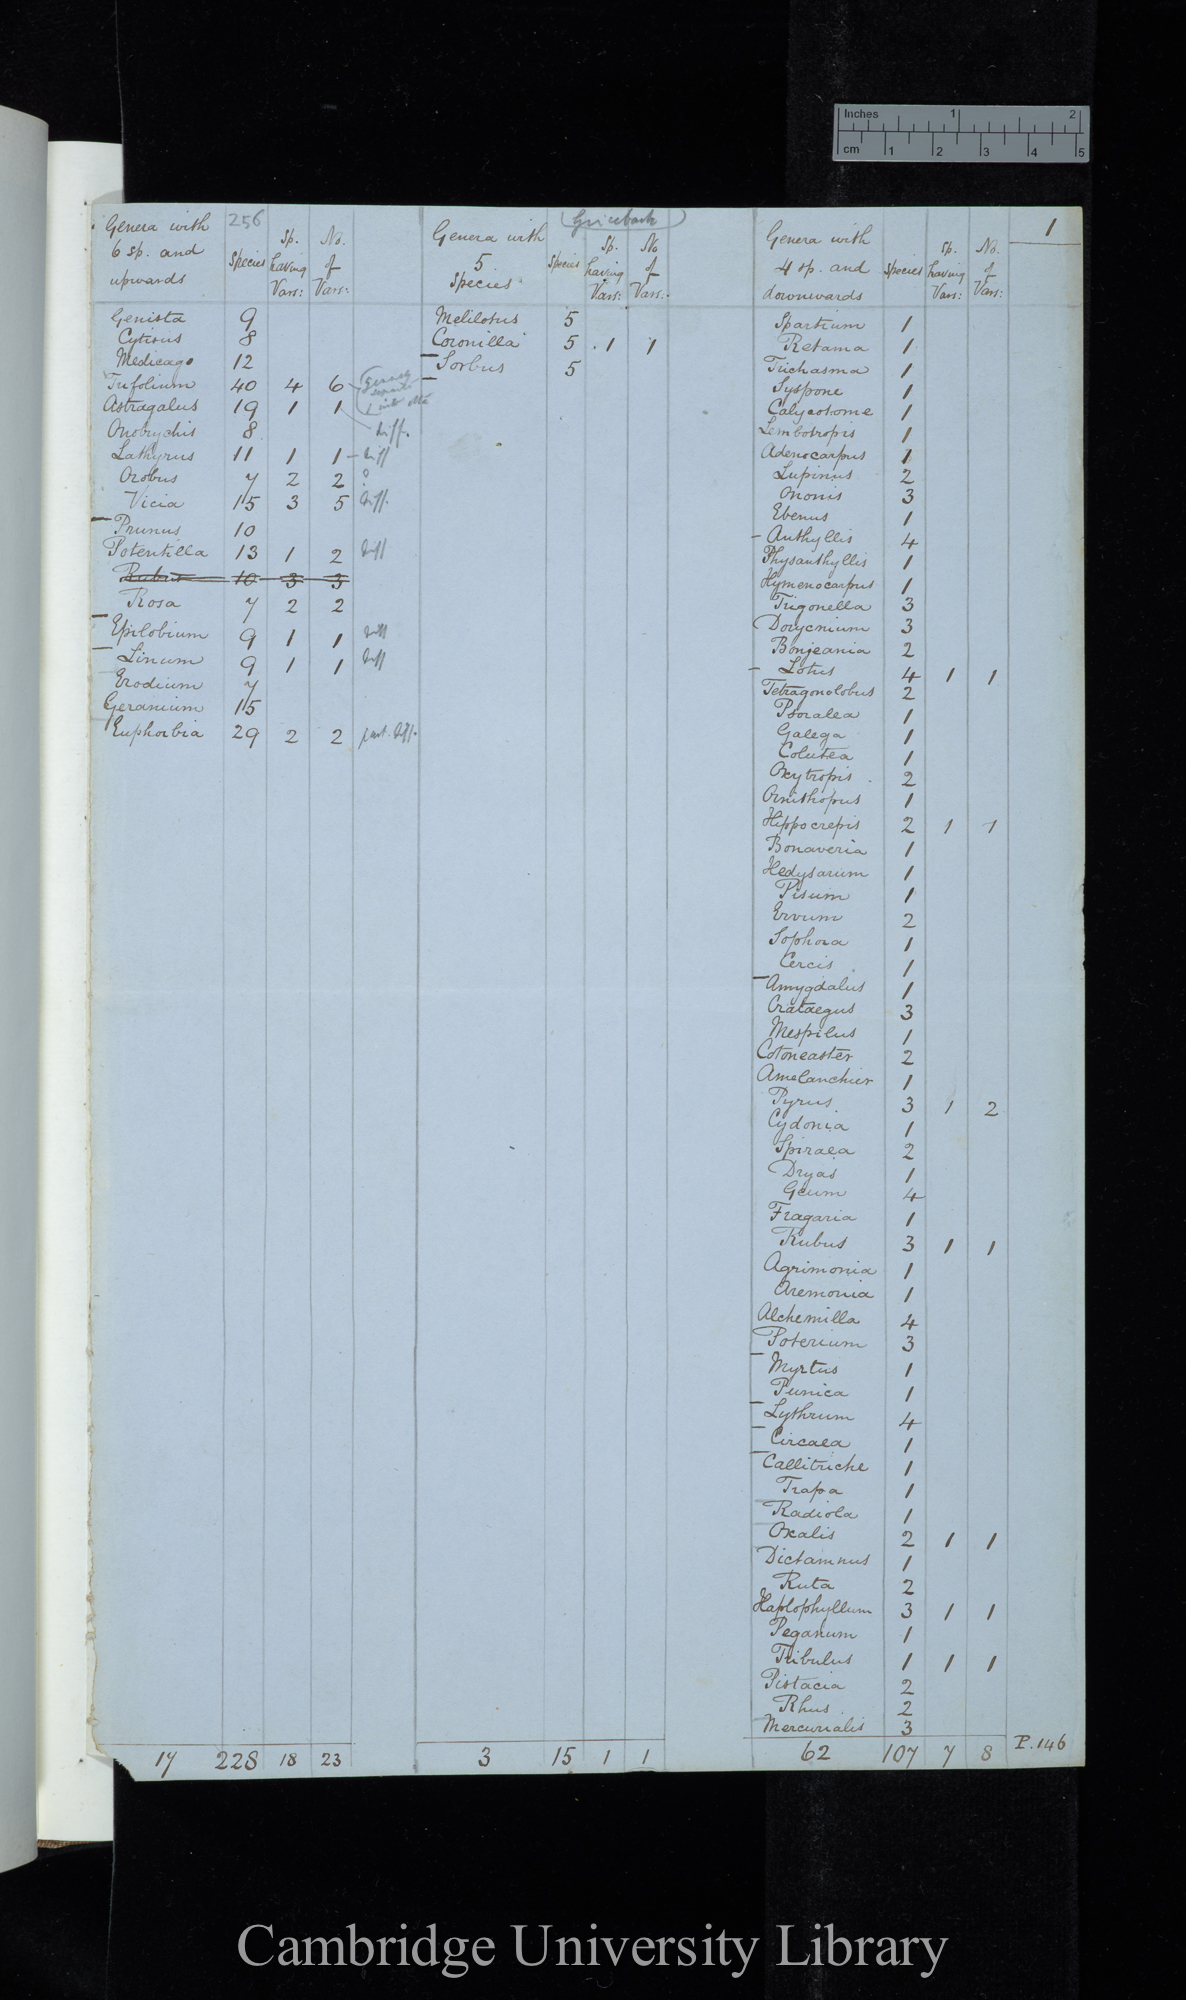 Inches 1 2
cm 1 2 3 4 5
1
256
Genera with 6 sp. and upwards
Species
Sp. having Vars:
No. of Vars:
Genista 9
Cytisus 8
Medicago 12
Trifolium 40 4 6
Astragalus 19 1 1
diff.
Onobrychis 8
Lathyrus 11 1 1 – diff
Orobus 7 2 2 ?
Vicia 15 3 5 diff.
Prunus 10
Potentilla 13 1 2 diff
Rubus 10 3 3
Rosa 7 2 2
Epilobium 9 1 1 diff
Linum 9 1 1 diff
Erodium 7
Geranium 15
Euphorbia 29 2 2 part. diff.
17 228 18 23
(Grisebach)
Genera with 5 Species
Species
Sp. having Vars:
No of Vars:
Melilotus 5
Coronilla 5 1 1
Sorbus 5
3 15 1 1
Genera with 4 sp. and downwards
Species
Sp. having Vars:
No. of Vars:
Spartium 1
Retama 1
Trichasma 1
Syspone 1
Calycotome 1
Lembotropis 1
Adenocarpus 1
Lupinus 2
Ononis 3
Ebenus 1
Anthyllis 4
Physanthyllis 1
Hymenocarpus 1
Trigonella 3
Dorycnium 3
Bonjeania 2
Lotus 4 1 1
Tetragonolobus 2
Psoralea 1
Galega 1
Colutea 1
Oxytropis 2
Ornithopus 1
Hippocrepis 2 1 1
Bonaveria 1
Hedysarum 1
Pisum 1
Ervum 2
Sophora 1
Cercis 1
Amygdalus 1
Crataegus 3
Mespilus 1
Cotoneaster 2
Amelanchier 1
Pyrus 3 1 2
Cydonia 1
Spiraea 2
Dryas 1
Geum 4
Fragaria 1
Rubus 3 1 1
Agrimonia 1
Aremonia 1
Alchemilla 4
Poterium 3
Myrtus 1
Punica 1
Lythrum 4
Circaea 1
Callitriche 1
Trapa 1
Radiola 1
Oxalis 2 1 1
Dictamnus 1
Ruta 2
Haplophyllum 3 1 1
Peganum 1
Tribulus 1 1 1
Pistacia 2
Rhus 2
Mercurialis 3
62 107 7 8
P. 146
Cambridge University Library